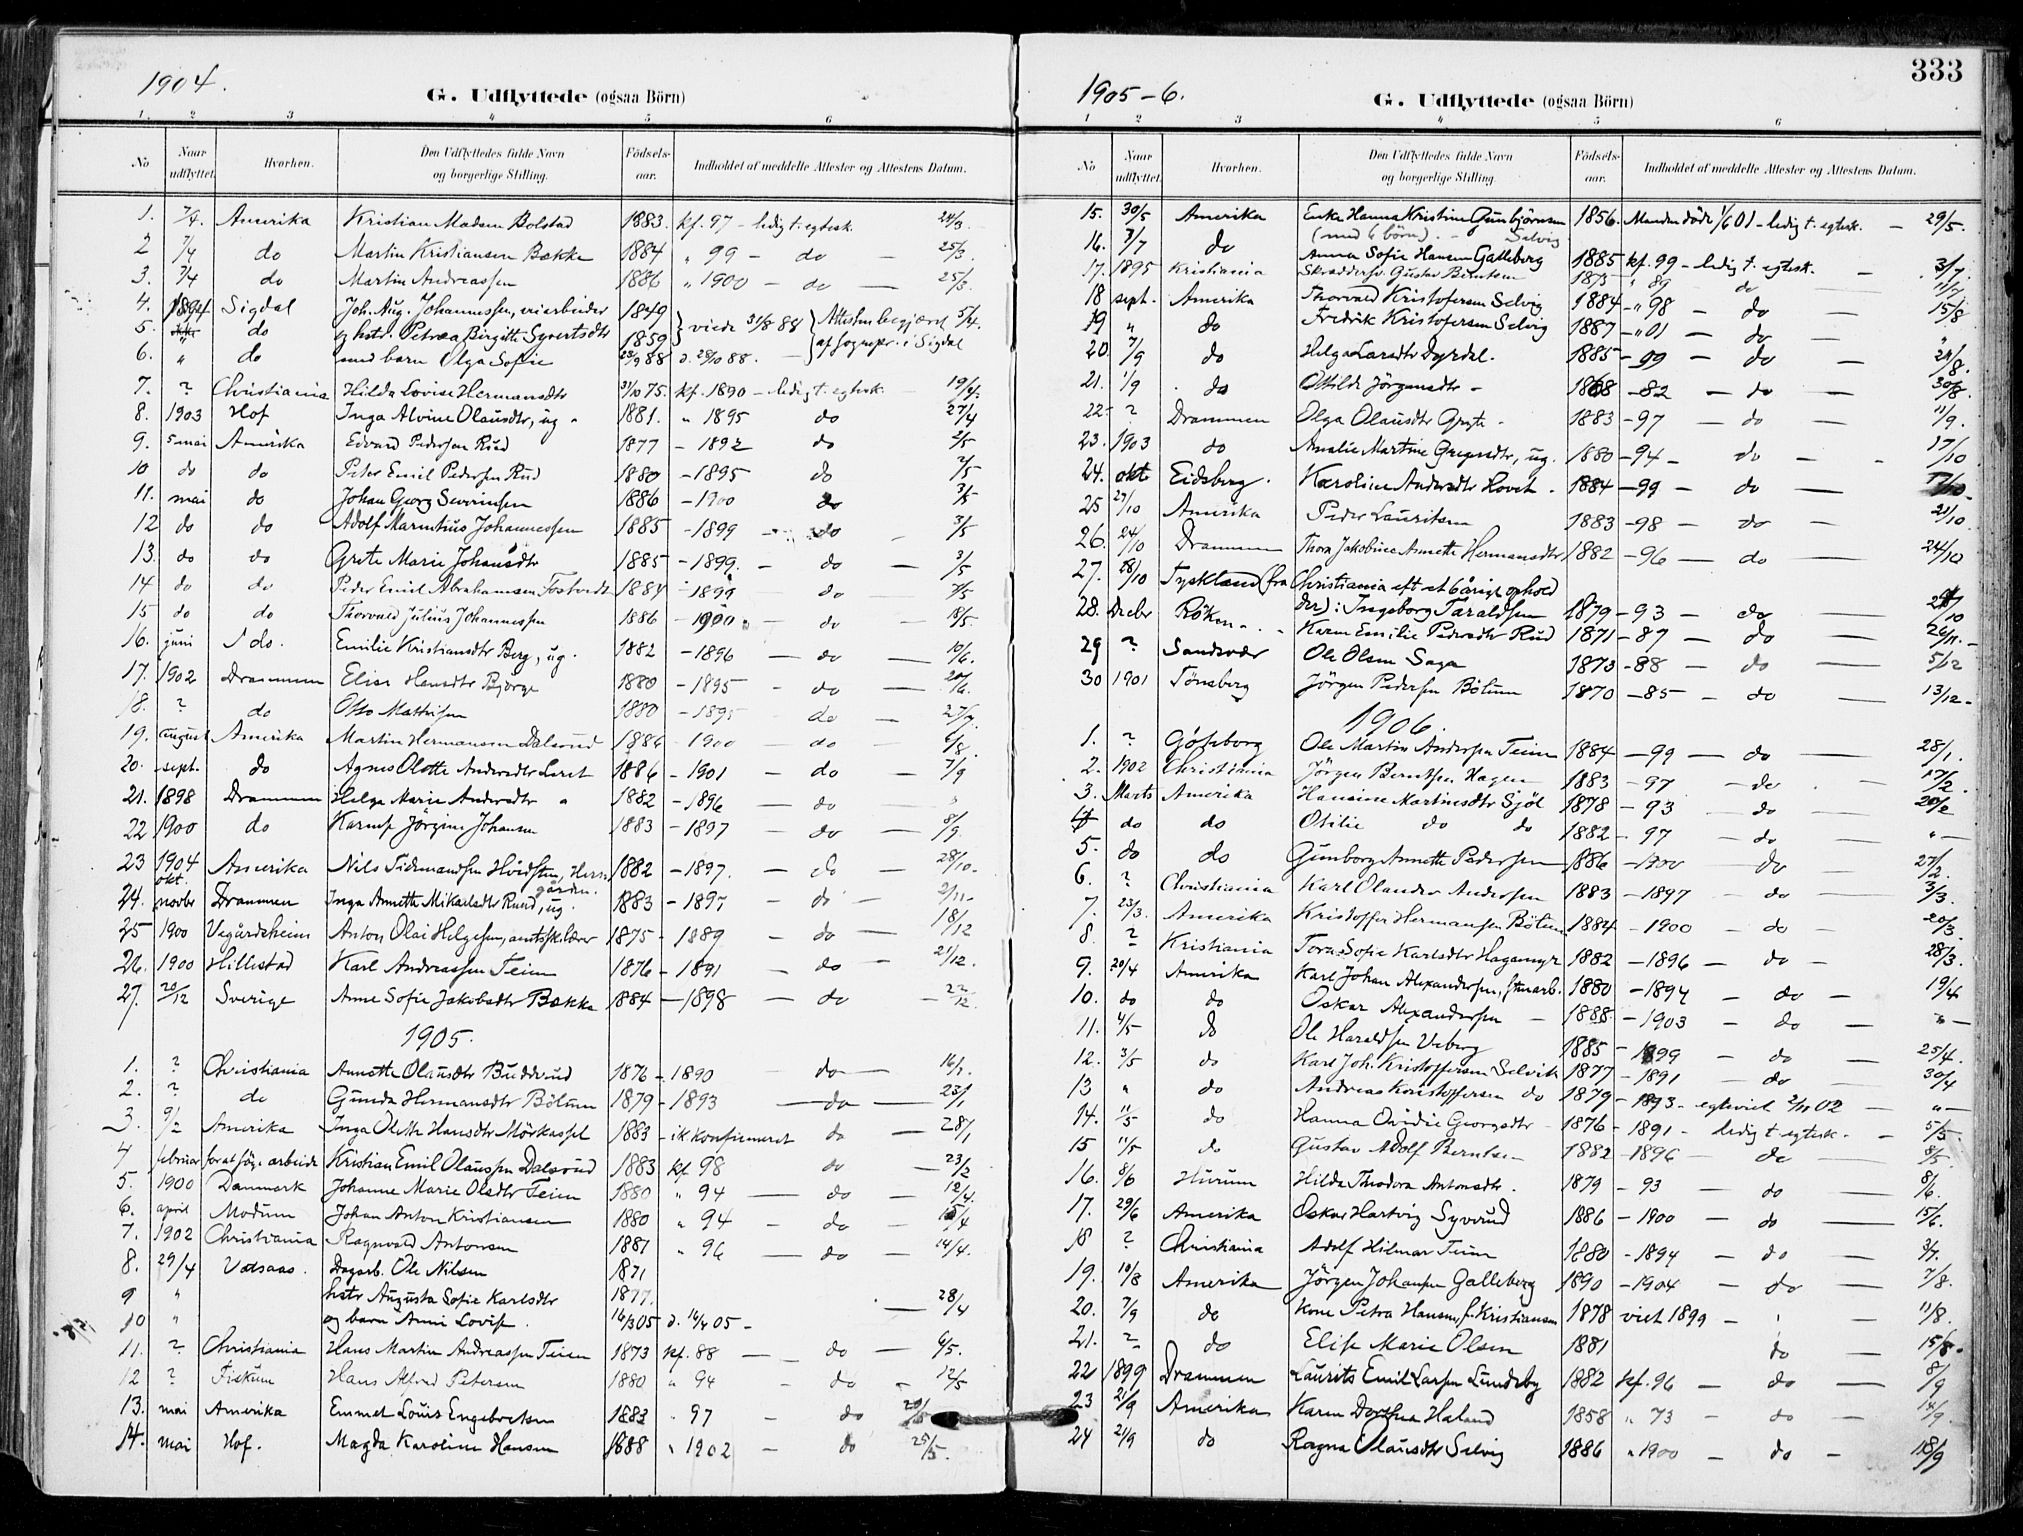 1904.
G. Udflyttede (ogsaa Börn)
1. 2 3 4 5 6
No Naar udflyttet. Hvorhen. Den Udflyttedes fulde Navn og borgerlige Stilling. Födsels-aar. Indholdet af meddelte Attester og Attestens Datum.
1. 7/4. Amerika Kristian Madsen Bolstad 1883 kf. 97 - ledig t. egtesk. 24/3.
2 7/4 do Martin Kristiansen Bække 1884 " 99 - do - 25/3.
3. 7/4 do Martin Andreassen 1886 " 1900 - do - 25/3.
4. 1894 Sigdal Joh. Aug. Johannessen, 1849
5. do og hstr. Petrea Birgitte Syvertsdtr 1859 viede 31/8 88 Attesten begjæret 5/4.
6. " do med barn Olga Sofie 23/9 88 d. 28/10 88. - af sognepr. i Sigdal
7. ? Christiania Hilda Lovise Hermansdtr 31/10 75. kf. 1890 - ledig t. egtesk. - 19/4.
8. 1903 Hof Inga Alvine Olausdtr, ug 1881. " 1895 do 27/4
9. 5 mai Amerika Edvard Pedersen Rud 1877 - 1892 do 2/5
10 do do Peter Emil Pedersen Rud 1880 - 1895 do 2/5
11. mai do Johan Georg Severinsen 1886 - 1900 do 3/5
12 do do Adolf Marentius Johannessen 1885 - 1899 - do 3/5
13. do do Grete Marie Johansdtr 1885 - 1899. - do - 3/5
14 do do Peder Emil Abrahamsen Fostvedt 1884 - 1899 do 7/5
15 do do Thorvald Julius Johannessen 1886 - 1900 - do - 18/5
16. juni do. Emilie Kristiansdtr Berg, ug. 1882 - 1896 - do - 10/6.
17. 1902 Drammen Elise Hansdtr Bjerge 1880 - 1895 - do - 20/6.
18. ? do Otto Mathisen 1880 - 1895 - do - 27/7.
19. august Amerika Martin Hermansen Dalsrud 1886 - 1900 - do - 6/8.
20. sept. do Agnes Olette Andersdtr Leret 1886 - 1901 - do - 7/9
21. 1898 Drammen Helga Marie Andersdtr " 1882 - 1896 - do - "
22 1900 do Karen Jörgine Johansen 1883 - 1897 - do - 8/9.
23 1904 okt. Amerika Nils Tidemandsen Hvidsten, Herregården. 1882 - 1897. - do - 28/10.
24. novbr Drammen Inga Annette Mikaelsdtr Rund, ug. 1883 - 1897 - do - 2/11.
25 1900 Vegårdsheim Anton Olai Helgesen, amtsskolelærer 1875 - 1889 - do - 18/12
26. 1900 Hillestad Karl Andreassen Teien 1876 - 1891 - do - 21/12.
27. 20/12 Sverige Anne Sofie Jakobsdtr Bække 1884 - 1898 - do - 22/12.
1905.
1. ? Christiania Annette Olausdtr Budderud 1876 - 1890 do - 16/1.
2. ? do Gunda Hermansdtr Bötum 1879 - 1893 - do - 23/1
3. 9/2 Amerika Inga Olette Hansdtr Mörkassel 1883 - ik. konfirmeret do - 28/1
4 februar for at söge arbeide Kristian Emil Olaussen Dalsrud 1883 kf 98 do - 23/2
5. 1900 Danmark Johanne Marie Olsdtr Teien 1880 " 94 - do - 12/4.
6. april Modum Johan Anton Kristiansen 1880 " 94 - do - 15/4
7. 1902 Christiania Ragnvald Antonsen 1881 " 96 - do - 14/4.
8. 29/4 Vadsaas. Dagarb. Ole Nilsen 1871
9 " hstr Augusta Sofie Karlsdtr 1877. - 28/4
10 " og barn Anni Lovise. 14/3 05 d. 16/4 05 -
11. ? Christiania Hans Martin Andreassen Teien 1873 kf. 88 - do - 6/5.
12 ? Fiskum Hans Alfred Petersen 1880 " 94 - do - 12/5
13. mai Amerika Emmet Louis Engebretsen 1883 " 97 - do 20/5
14. mai Hof. Magda Karoline Hansen 1888 " 1902 - do 25/5.
333
1905-6.
G. Udflyttede (ogsaa Börn)
1 2 3 4 5 6
No Naar udflyttet. Hvorhen. Den Udflyttedes fulde Navn og borgerlige Stilling. Födsels-aar. Indholdet af meddelte Attester og Attestens Datum.
15. 30/5 Amerika Enke Hanna Kristine Gunbjörnsen 1856. Manden döde 1/6 01 - ledig t. egtesk. - 29/5.
(med 6 börn). - Selvig
16. 3/7 do Anna Sofie Hansen Galleberg 1885 kf. 99 - ledig t. egtesk. - 3/7
17. 1895 Kristiania Skræddersv. Gustav Berntsen 1873 " 89 do - 11/7
18 sept. Amerika Thorvald Kristofersen Selvig 1884 - " 98 - do - 15/8
19 " do Fredrik Kristofersen Selvig 1887 - " 01 - do - "
20. 7/9 do Helga Larsdtr Dyrdal. 1885 - 99 - do - 24/8.
21. 1/9 do Otilde Jörgensdtr - 1868 - 82 - do - 30/8.
22 ? Drammen Olga Olausdtr Gryte - 1883 - 97 - do - 11/9.
23. 1903 do Amalie Martine Gregersdtr, ug. 1880 - 94 - do - 17/10
24. okt Eidsberg. Karoline Andersdtr Hovet. 1884 - 99 - do - 17/10.
25 27/10 Amerika Peder Lauritsen 1883 - 98 - do - 21/10.
26. 24/10 Drammen Thora Jakobine Annette Hermansdtr 1882 - 96 - do - 24/10
27. 28/10 Tyskland (fra Christiania eft et 6 årigt ophold
der): Ingeborg Taraldsen 1879 - 93 - do - 27/10
28. Decbr Röken - Karen Emilie Pedersdtr Rud 1871 - 87 - do - 26/11.
29 ? Sandsvær Ole Olsen Saga 1873 - 88 - do - 5/12
30 1901 Tönsberg Jörgen Pedersen Bötum 1870 - 85 - do - 13/12.
1906.
1. ? Göteborg Ole Martin Andersen Teien 1884 - 99 - do - 28/1.
2. 1902 Christiania Jörgen Berntsen Hagen 1883 - 97 - do - 17/2.
3. Marts Amerika Hansine Martinsdtr Sjöl 1878 - 93 - do 20/2
4 do do Otilie do do 1882 - 97 - do - " -
5. do do Gunborg Annette Pedersen 1886 - 1900 - do - 27/2.
6. ? Christiania Karl Olander Andersen 1883 - 1897 - do - 3/3.
7. 23/3. Amerika Kristoffer Hermansen Bötum 1884 - 1900 - do - 20/3.
8. ? Kristiania Tora Sofie Karlsdtr Hagamyr 1882 - 1896 - do - 28/3.
9. 20/4 Amerika Karl Johan Alexandersen, stenarb. 1880 - 1894 - do - 19/4
10. do do Oskar Alexandersen - 1888 - 1903 - do - " -
11. 4/5 do Ole Haraldsen Viberg 1885 - 1899 - do - 25/4.
12. 3/5 do Karl Joh. Kristoffersen Selvik 1877 - 1891 - do - 30/4
13 " do Andreas Kristoffersen do 1879 - 1893 - egteviet 2/11 02 - " -
14. 11/5 do Hanna Ovidie Georgsdtr - 1876 - 1891 - ledig t. egtesk. - 5/5
15 11/5 do Gustav Adolf Berntsen 1882 - 1896 - do - 8/5.
16. 8/6 Hurum Hilda Theodora Antonsdtr. 1879 - 93 - do - 8/6.
17. 29/6 Amerika Oskar Hartvig Syverud 1886 - 1900 - do - 15/6.
18 ? Christiania Adolf Hilmar Teien 1880 - 1894 - do - 3/7.
19. 10/8 Amerika Jörgen Johansen Galleberg 1890 - 1904 - do - 7/8.
20. 7/9 do Kone Petra Hansen, f. Kristiansen 1878 viet 1899 - " - 11/8.
21. ? do Elise Marie Olsen 1881 do - 15/8.
22 1899 Drammen Laurits Emil Larsen Lundeby 1882 kf. 96 - do - 8/9
23 21/9 Amerika Karen Dorthea Haland 1858 " 73 - do - 14/9.
24 21/9 do Ragna Olausdtr Selvig 1886 " 1900 - do - 18/9